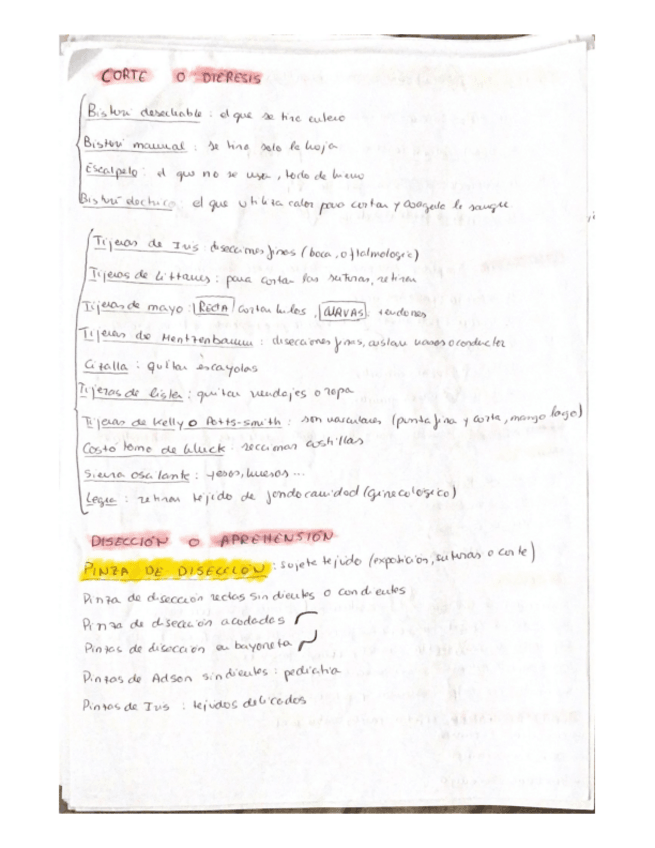 CORTE O DIÉRESIS
Bisturí desechable : el que se tira entero
Bisturí manual : se tira solo la hoja
Escalpelo : el que no se usa, todo de nuevo
Bisturí electrico : el que utiliza calor para cortar y coagula la sangre
Tijeras de Iris : disecciones finas (boca, oftalmologic)
Tijeras de Littaues : para cortar las suturas, retiran
Tijeras de mayo : RECTA cortan hilos, CURVAS : tendones
Tijeras de Mentzenbaum : disecciones finas, aislan vasos o conductos
Citalla : quitar escayolas
Tijeras de lister : quitar vendajes o ropa
Tijeras de Kelly o Potts-smith : son vasculares (punta fina y corta, mango largo)
Costo tomo de Gluck : seccionar costillas
Sierra oscilante : yesos, huesos ...
Legra : retiran tejido de fondo cavidad (ginecologico)
DISECCIÓN O APREHENSIÓN
PINZA DE DISECCIÓN : sujeta tejido (exposicion, suturas o corte)
Pinza de diseccion rectas sin dientes o con dientes
Pinza de diseccion acodadas
Pinzas de diseccion en bayoneta
Pinzas de Adson sin dientes : pediatria
Pinzas de Iris : tejudos delicados